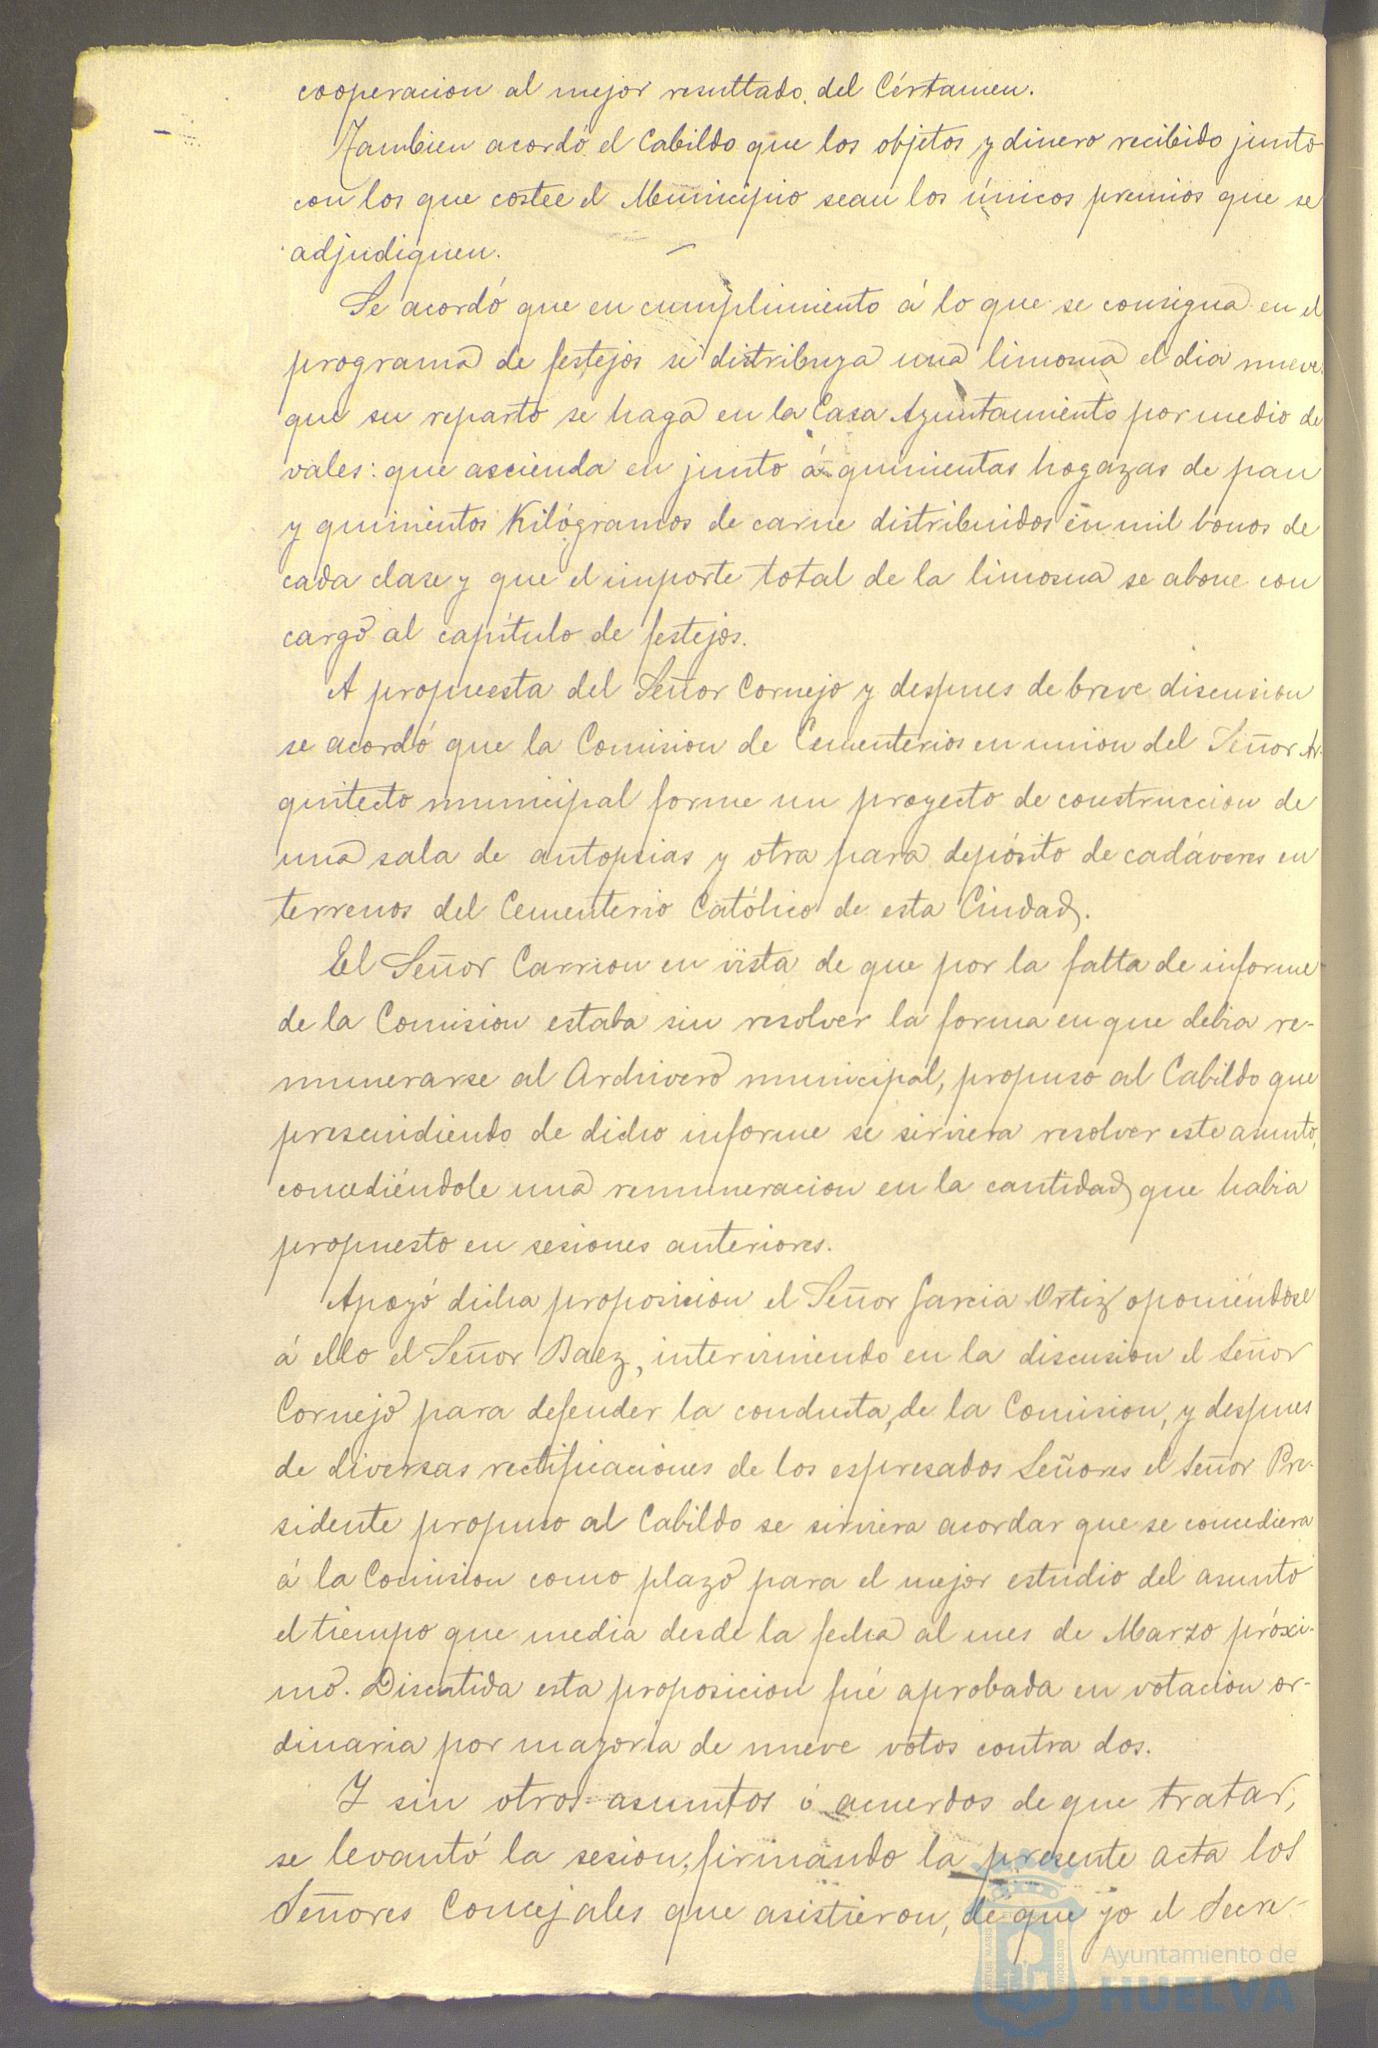 cooperacion al mejor resultado del Cértamen.
Tambien acordó el Cabildo que los objetos y dinero recibido junto
con los que costee el Municipio sean los únicos premios que se
adjudiquen.
Se acordó que en cumplimiento á lo que se consigna en el
programa de festejos se distribuya una limosna el dia nueve:
que su reparto se haga en la Casa Ayuntamiento por medio de
vales: que ascienda en junto á quinientas hogazas de pan
y quinientos Kilógramos de carne distribuidos en mil bonos de
cada clase y que el importe total de la limosna se abone con
cargo al capítulo de festejos.
A propuesta del Señor Cornejo y despues de breve discusion
se acordó que la Comision de Cementerios en union del Señor Ar-
quitecto municipal forme un proyecto de construccion de
una sala de autopsias y otra para depósito de cadáveres en
terrenos del Cementerio Católico de esta Ciudad.
El Señor Carrion en vista de que por la falta de informe
de la Comision estaba sin resolver la forma en que debia re-
munerarse al Archivero municipal, propuso al Cabildo que
prescindiendo de dicho informe se sirviera resolver este asunto,
concediéndole una remuneracion en la cantidad que habia
propuesto en sesiones anteriores.
Apoyó dicha proposicion el Señor Garcia Ortiz oponiéndose
á ello el Señor Baez, interviniendo en la discusion el Señor
Cornejo para defender la conducta, de la Comision, y despues
de diversas rectificaciones de los espresados Señores el Señor Pre-
sidente propuso al Cabildo se sirviera acordar que se concediera
á la Comision como plazo para el mejor estudio del asunto
el tiempo que media desde la fecha al mes de Marzo próxi-
mo. Discutida esta proposicion fué aprobada en votacion or-
dinaria por mayoria de nueve votos contra dos.
Y sin otros asuntos ó acuerdos de que tratar,
se levantó la sesion, firmando la presente acta los
Señores Concejales que asistieron, de que yo el Secre-
Ayuntamiento de
HUELVA